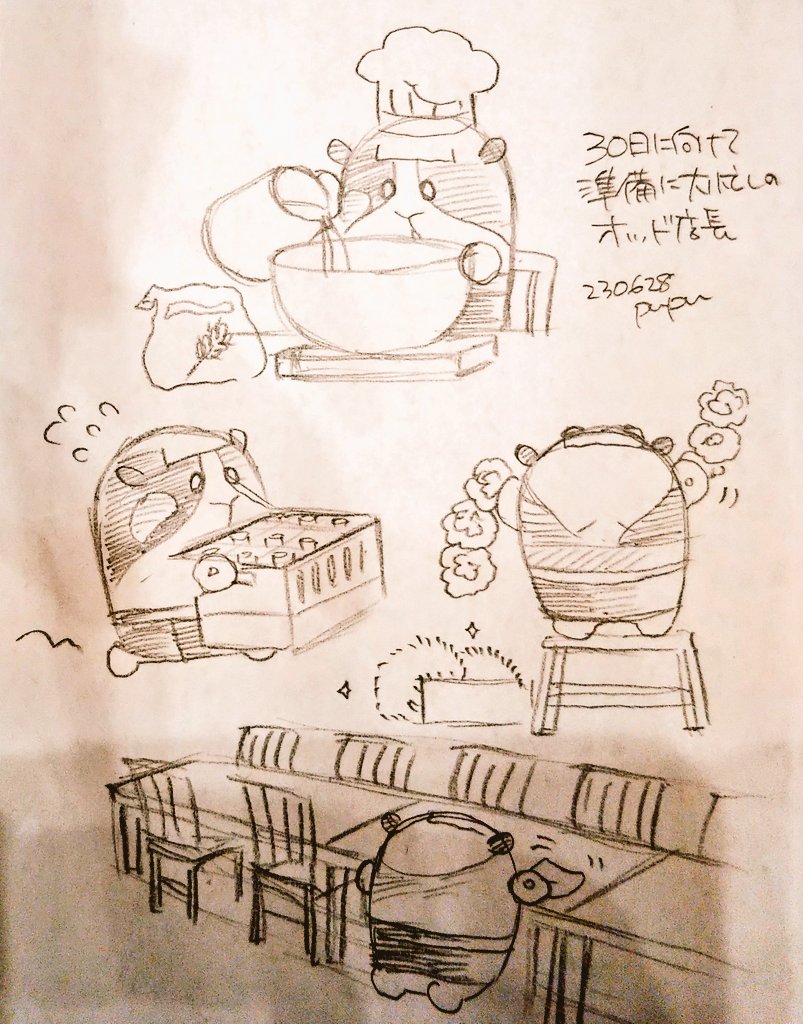 30日に向けて
準備に大忙しの
ホッド店長
230628
puipui